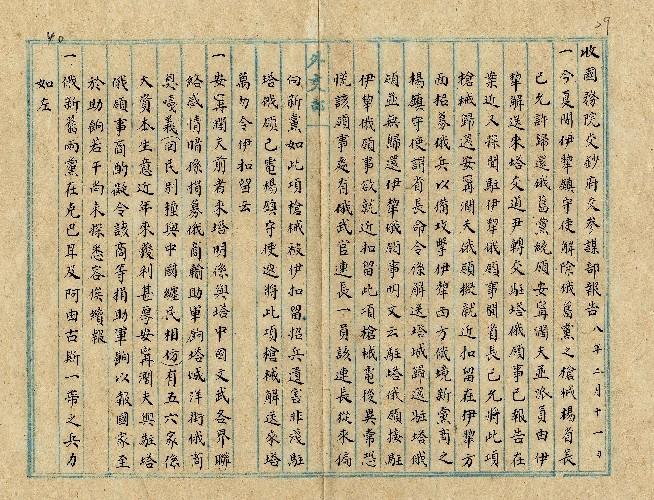 29
收國務院交鈔府交參謀部報告 八年二月十一日
一今夏間伊犂鎮守使解除俄舊黨之槍械楊省長
已允許歸還俄舊黨統領安甯濶夫並派員由伊
犂解送來塔交道尹轉交駐塔俄領事已報告在
案近又探聞駐伊犂俄領事聞省長已允將此項
槍械歸還安甯濶夫俄領擬就近扣留在伊犂方
面招募俄兵以備攻擊伊犂西方俄境新黨商之
楊鎮守使謂省長命令係解送塔城歸還駐塔俄
領並無歸還伊犂俄領事明文云駐塔俄領接駐
伊犂俄領事欲就近扣留此項槍械電後異常恐
慌該領事處有俄武官連長一員該連長從來偏
外交部
向新黨如此項槍械被伊扣留招兵遺害非淺駐
塔俄領已電楊鎮守使速將此項槍械解送來塔
萬勿令伊扣留云
一安甯濶夫前者來塔明係與塔中國文武各界聯
絡感情暗係捐募俄商輸助軍餉塔城洋街俄商
義回民別種與中國纏民相仿有五六家係
大資本生意近年來獲利甚厚安甯濶夫與駐塔
俄領事商酌擬令該商等捐助軍餉以報國家至
於助餉若干尚未探悉容俟續報
一俄新舊兩黨在克巴耳及阿由古斯一帶之兵力
如左
40